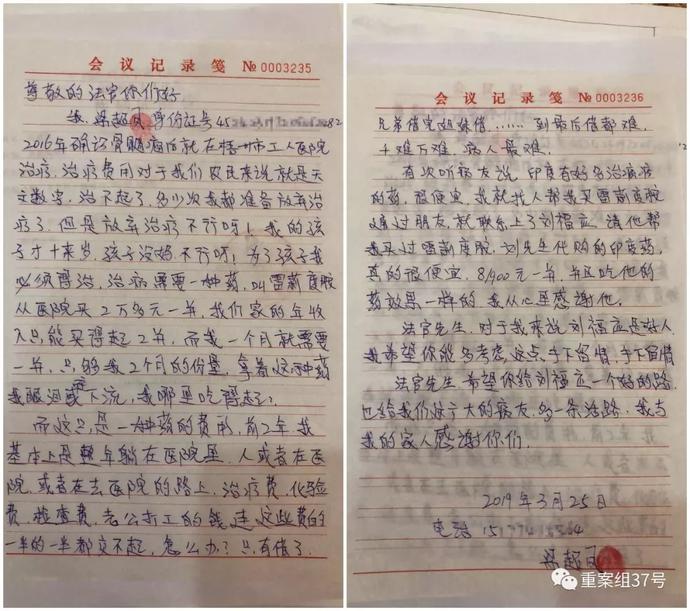 会议记录笺 № 0003235
尊敬的法官你们好
我 梁超凤 身份证号 45
2016年确诊骨髓瘤后就在梧州市工人医院
治疗，治疗费用对于我们农民来说就是天
文数字，治不起了，多少次我都准备放弃治
疗了，但是放弃治疗不行呀！我的孩
子才十来岁，孩子没妈不行呀！为了孩子我
必须得治，治病需要一种药，叫雷莉度胺
从医院买2万多元一并，我们家的年收
入只能买得起2并，而我一个月就需要
一并，只够我2个月的份量，拿着这种药
我眼泪下流，我哪里吃得起？
而这只是一种药的费用，前2年我
基本上是整年躺在医院里，人或者在医
院，或者在去医院的路上，治疗费，化验
费，检查费，老公打工的钱，连这些费的
一半的一半都交不起，怎么办？只有借了
会议记录笺 № 0003236
兄弟借完姐妹借……到最后借都难，
千难万难，病人最难，
有次听病友说，印度有好多治病
的药，很便宜，我就找人帮我买雷莉度胺
通过朋友，就联系上了刘福应，请他帮
我买过雷莉度胺，刘先生代购的印度药，
真的很便宜，8,900元一并，并且吃他的
药效果一样的，我从心里感谢他。
法官先生，对于我来说刘福应是好人
我希望你能多考虑这点，手下留情，手下留情
法官先生，希望你给刘福应一个好的路
也给我们这广大的病友，多一条活路，我与
我的家人感谢你们，
2019年3月25日
电话
梁超凤
重案组37号